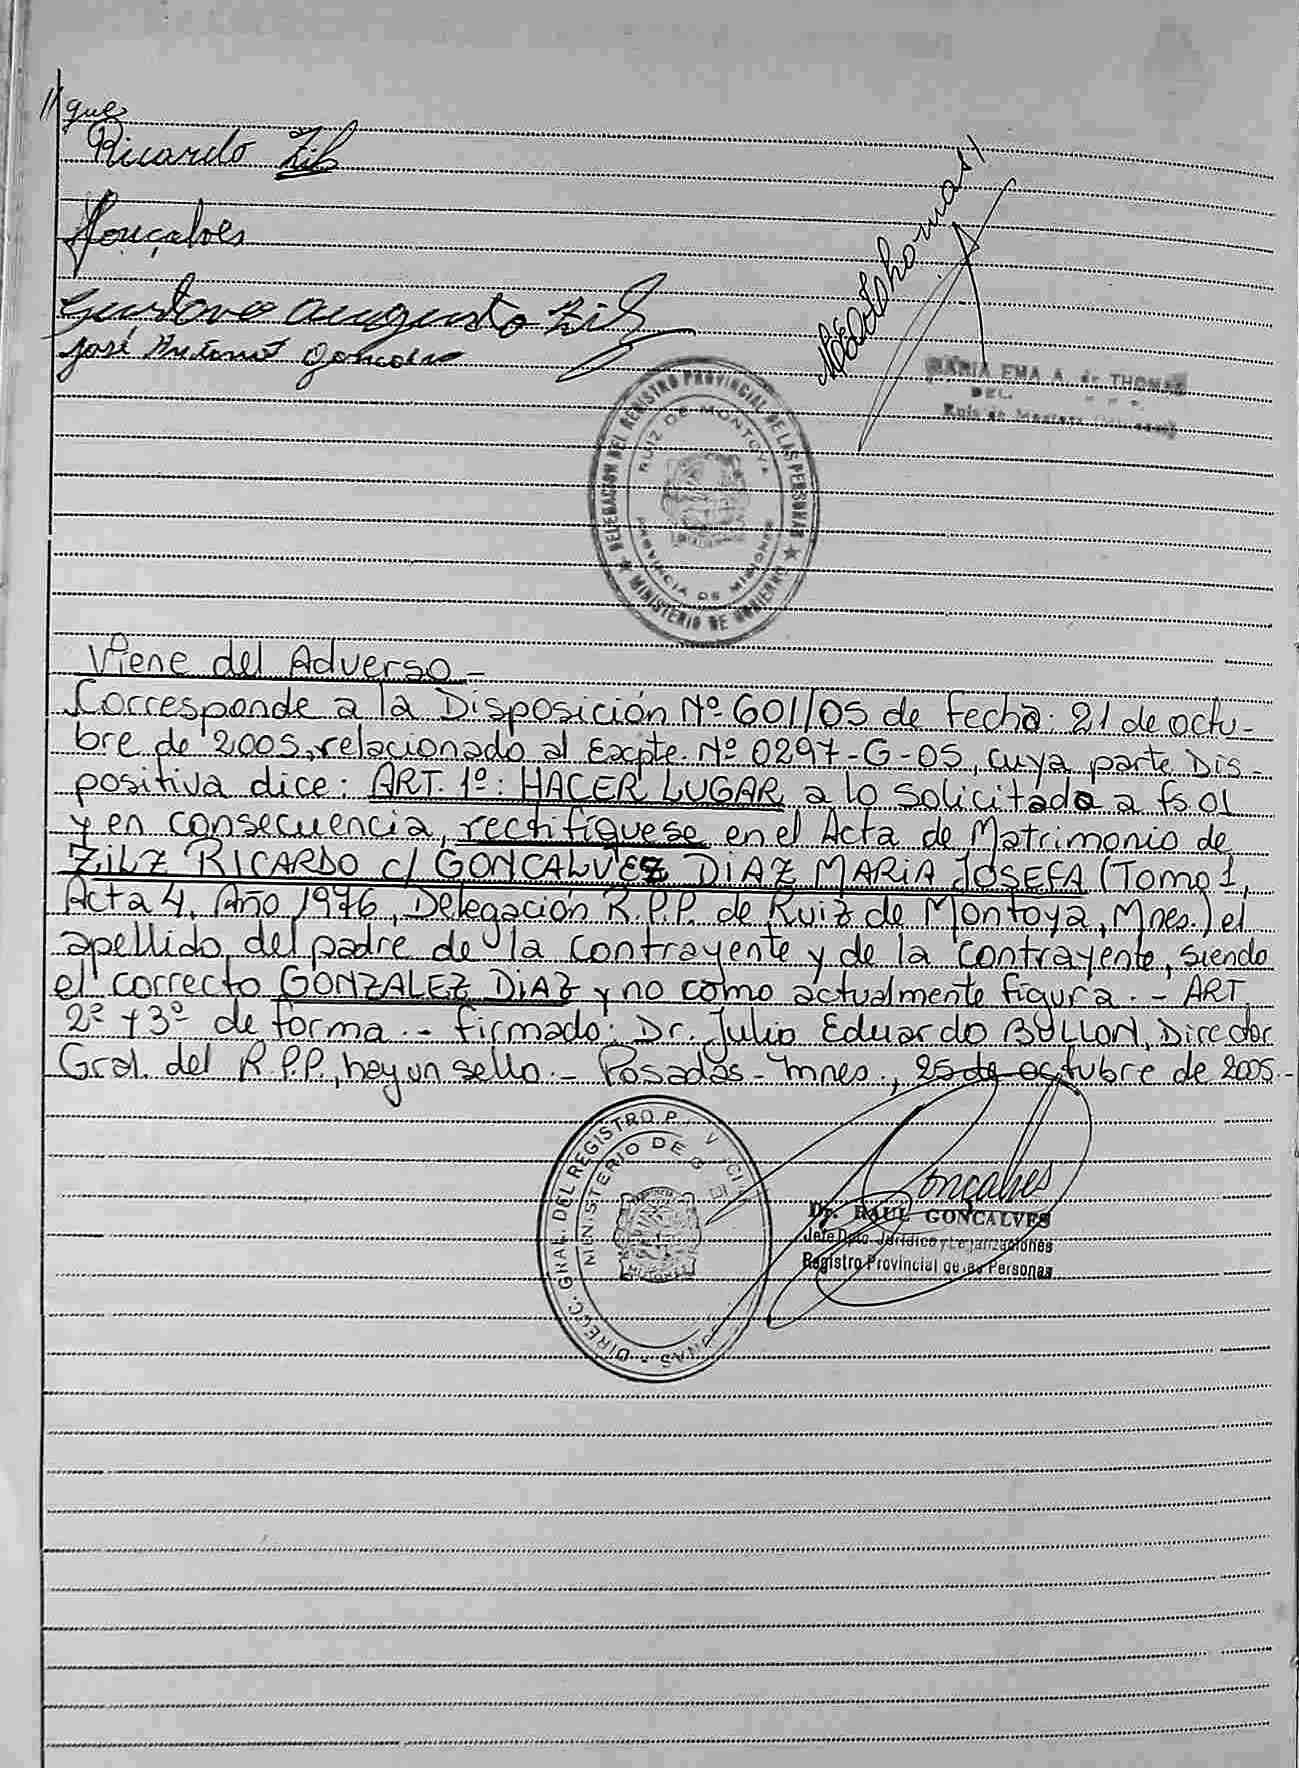 //gue
Ricardo Zilz
Gonçalves
Gustavo Augusto Zilz
José Antonio
MARIA EMA A. de THOMAS
DEL.
Ruiz de Montoya (Misiones)
DELEGACION DEL REGISTRO PROVINCIAL DE LAS PERSONAS
MINISTERIO DE GOBIERNO
RUIZ DE MONTOYA
PROVINCIA DE MISIONES
Viene del Adverso -
Corresponde a la Disposición Nº 601/05 de fecha: 21 de octu-
bre de 2005, relacionado al Excpte. Nº 0297-G-05, cuya parte Dis-
positiva dice: ART. 1º: HACER LUGAR a lo solicitado a fs. 01
y en consecuencia, rectifíquese en el Acta de Matrimonio de
ZILZ RICARDO c/ GONCALVEZ DIAZ MARIA JOSEFA (Tomo 1,
Acta 4, Año 1976, Delegación R.P.P. de Ruiz de Montoya, Mnes.) el
apellido del padre de la contrayente y de la contrayente, siendo
el correcto GONZALEZ DIAZ y no como actualmente figura.- ART.
2º y 3º de forma.- firmado: Dr. Julio Eduardo BULLON, Director
Gral. del R.P.P., hay un sello.- Posadas - Mnes., 25 de octubre de 2005.-
DIRECC. GRAL. DEL REGISTRO
MINISTERIO DE
MISIONES
Gonçalves
Dr. RAUL GONCALVES
Jefe Dpto. Jurídico y Legalizaciones
Registro Provincial de las Personas